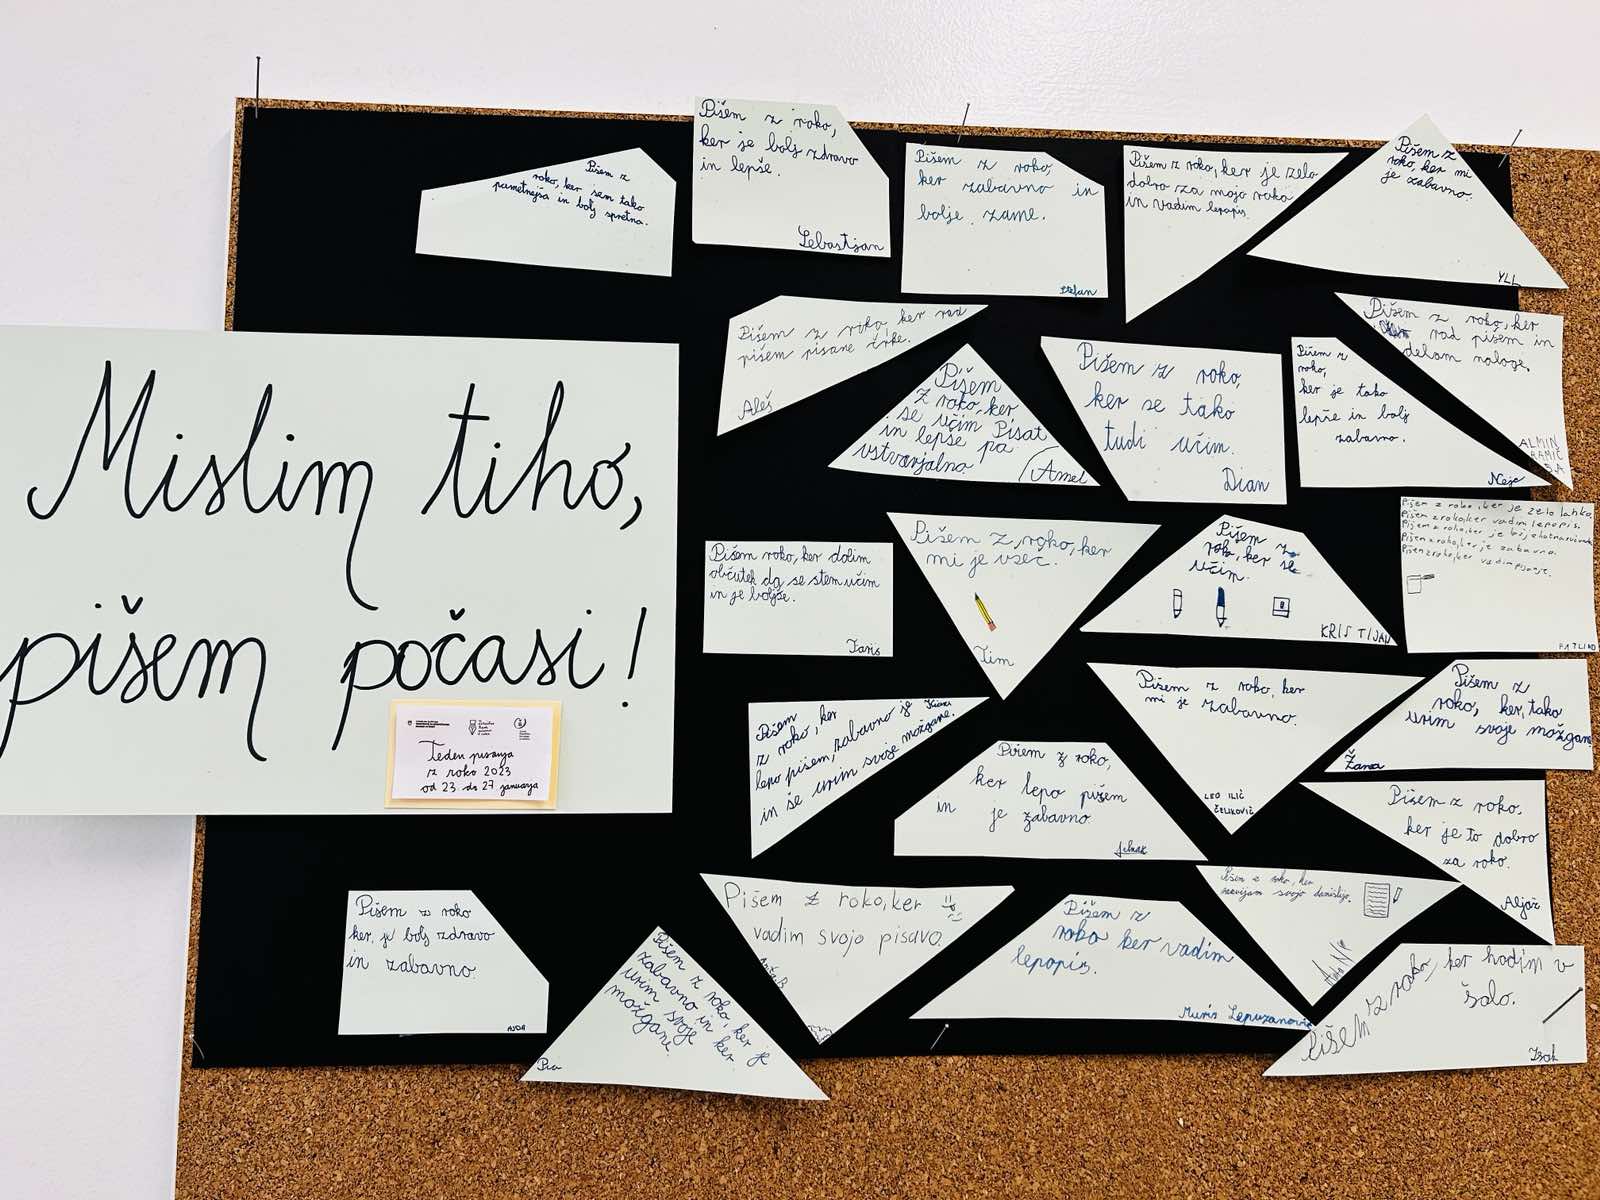 Mislim tiho,
pišem počasi!
Teden pisanja
z roko 2023
od 23 do 27 januarja
Pišem z
roko, ker sem tako
pametnejša in bolj spretna.
Pišem z roko,
ker je bolj zdravo
in lepše.
Sebastjan
Pišem z roko,
ker zabavno in
bolje zame.
Stefan
Pišem z roko, ker je zelo
dobro za mojo roko
in vadim lepopis.
Pišem z
roko, ker mi
je zabavno.
YLL
Pišem z roko, ker rad
pišem pisane črke.
Aleš
Pišem
z roko, ker
se učim Pisat
in lepše pa
ustvarjalno
Amel
Pišem z roko,
ker se tako
tudi učim.
Dian
Pišem z
roko,
ker je tako
lepše in bolj
zabavno.
Neje
Pišem z roko, ker
rad pišem in
delam naloge.
ALMIN
RAMIĆ
Pišem roko, ker dobim
občutek da se stem učim
in je boljše.
Faris
Pišem z roko, ker
mi je všeč.
Tim
Pišem z
roko, ker se
učim.
KRISTIJAN
Pišem z roko, ker je zelo lahko
Pišem z roko, ker vadim lepopis.
Pišem z roko, ker je bolj
Pišem z roko, ker je zabavno.
Pišem z roko, ker vadim pisanje.
Pišem
z roko, ker
lepo pišem, zabavno je
in še urim svoje možgane.
Kiara
Pišem z roko,
ker lepo pišem
in je zabavno.
Pišem z roko, ker
mi je zabavno.
LEO ILIĆ
ČELIKOVIĆ
Pišem z
roko, ker, tako
urim svoje možgane
Žana
Pišem z roko,
ker je to dobro
za roko.
Aljaž
Pišem z roko
ker, je bolj zdravo
in zabavno.
AJDA
Pišem z roko, ker je
zabavno in ker
urim svoje
možgane.
Pia
Pišem z roko, ker
vadim svojo pisavo.
Pišem z
roko ker vadim
lepopis.
Muris Lepuzanović
Pišem z roko, ker
razvijam svojo domišljijo.
Pišem z roko, ker hodim v
šolo.
Izak